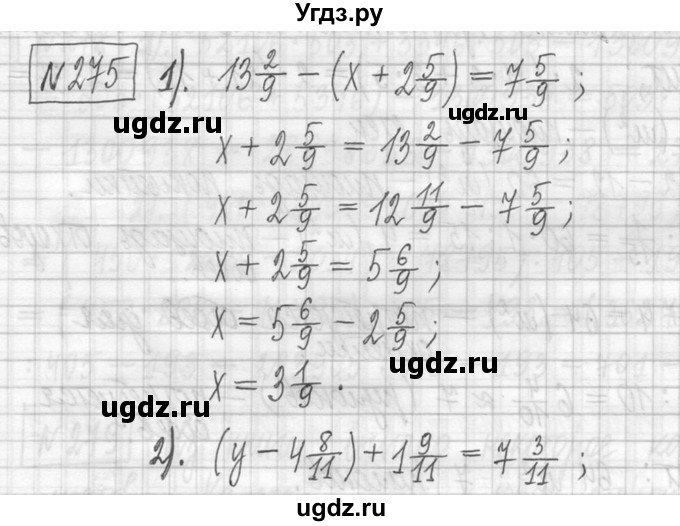 Угдз.ру
№275 1). 13 2/9 − (x + 2 5/9) = 7 5/9 ;
ugdz.ru
ugdz.ru
x + 2 5/9 = 13 2/9 − 7 5/9 ;
x + 2 5/9 = 12 11/9 − 7 5/9 ;
x + 2 5/9 = 5 6/9 ;
x = 5 6/9 − 2 5/9 ;
ugdz.ru
x = 3 1/9 .
ugdz.ru
2). (y − 4 8/11) + 1 9/11 = 7 3/11 ;
ugdz.ru
ugdz.ru